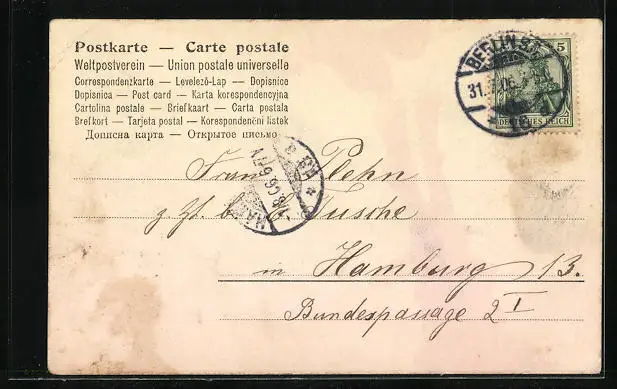 Postkarte — Carte postale
Weltpostverein — Union postale universelle
Correspondenzkarte — Levelező-Lap — Dopisnice
Dopisnica — Post card — Karta korespondencyjna
Cartolina postale — Briefkaart — Carta postala
Brefkort — Tarjeta postal — Korespondenční listek
Дописна карта — Открытое письмо
BERLIN
31.
5
DEUTSCHES REICH
Plehn
z. Zt. b. Tusche
in Hamburg 13.
Bundespassage 2 I